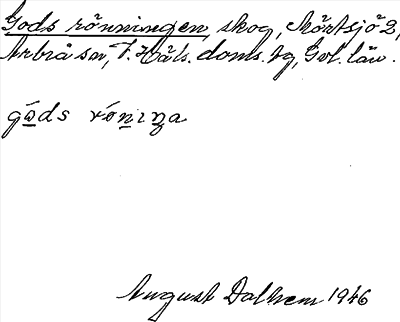 Gods rönningen, skog, Mörtsjö 2,
Arbrå sn, V. Häls. doms. tg, Gvl. län.
gòds rónıŋa
August Dalhem 1946